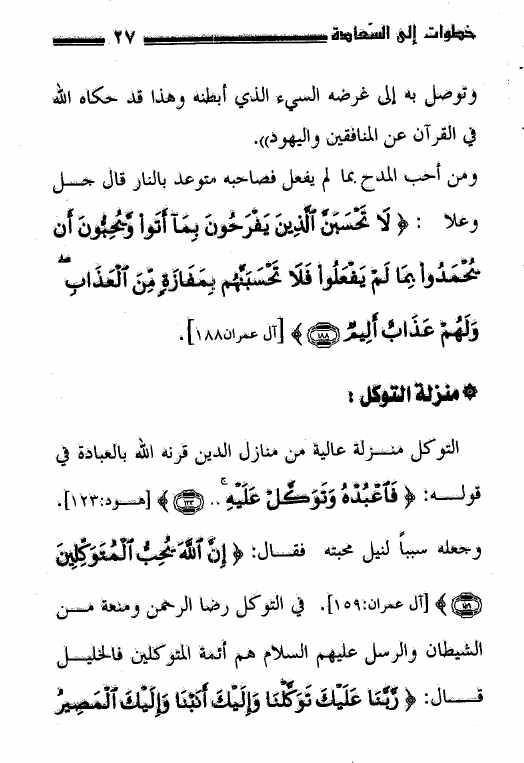 خطوات إلى السَّعادة ٢٧
وتوصل به إلى غرضه السيء الذي أبطنه وهذا قد حكاه الله
في القرآن عن المنافقين واليهود)).
ومن أحب المدح بما لم يفعل فصاحبه متوعد بالنار قال جـل
وعلا : ﴿ لَا تَحْسَبَنَّ ٱلَّذِينَ يَفْرَحُونَ بِمَآ أَتَواْ وَّيُحِبُّونَ أَن
يُحْمَدُواْ بِمَا لَمْ يَفْعَلُواْ فَلَا تَحْسَبَنَّهُم بِمَفَازَةٍ مِّنَ ٱلْعَذَابِ ۖ
وَلَهُمْ عَذَابٌ أَلِيمٌ ١٨٨ ﴾ [آل عمران١٨٨].
۞ منزلة التوكل :
التوكل منـزلة عالية من منازل الدين قرنه الله بالعبادة في
قولـه: ﴿ فَٱعْبُدْهُ وَتَوَكَّلْ عَلَيْهِ ۚ .. ١٢٣ ﴾ [هـود:١٢٣].
وجعله سبباً لنيل محبته فقـال: ﴿ إِنَّ ٱللَّهَ يُحِبُّ ٱلْمُتَوَكِّلِينَ
١٥٩ ﴾ [آل عمران:١٥٩]. في التوكل رضا الرحمن ومنعة مـن
الشيطان والرسل عليهم السلام هم أئمة المتوكلين فالخليـل
قـال: ﴿ رَّبَّنَا عَلَيْكَ تَوَكَّلْنَا وَإِلَيْكَ أَنَبْنَا وَإِلَيْكَ ٱلْمَصِيرُ